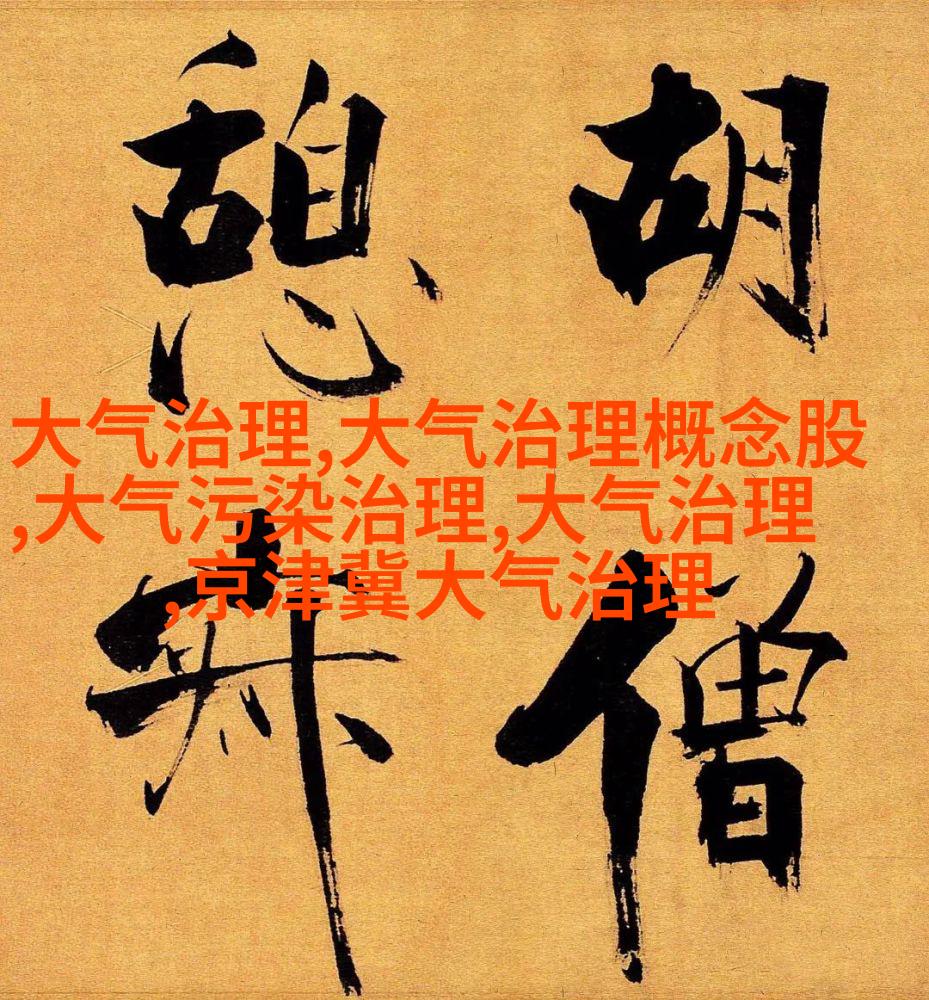 胡僧
憩寂
大气治理,大气治理概念股
,大气污染治理,大气治理
,京津冀大气治理